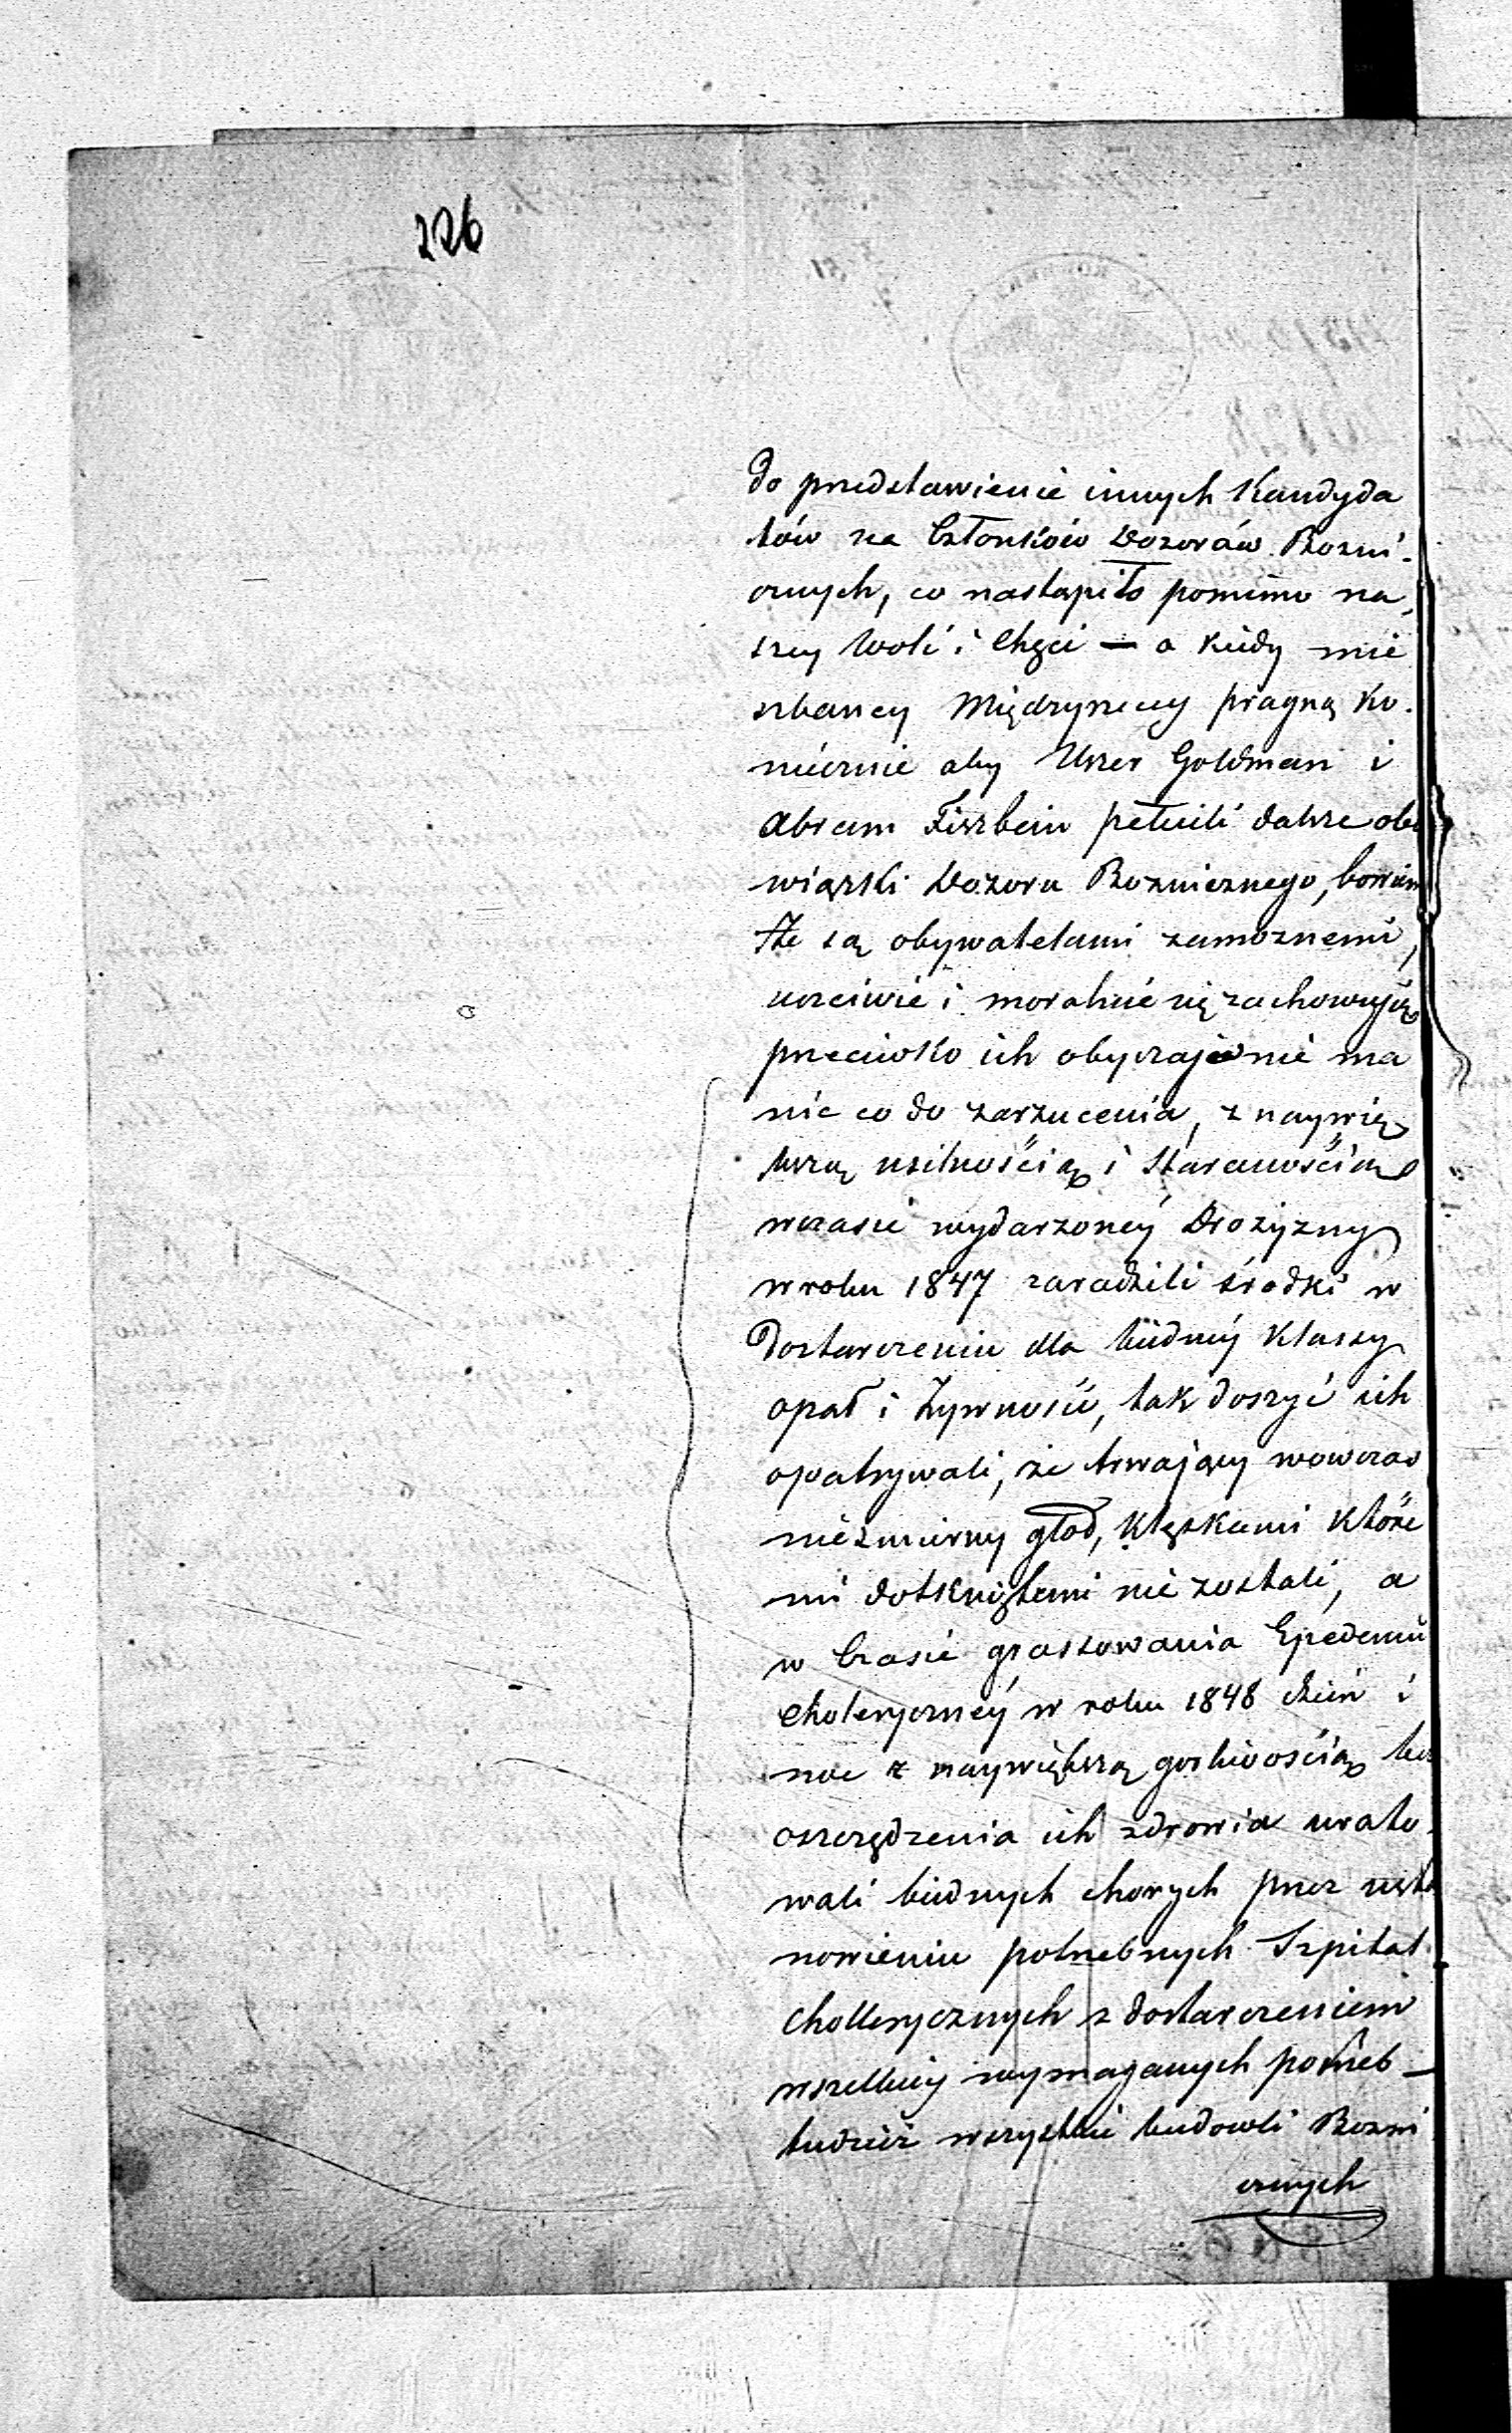 226
do przedstawienie innych Kandyda
tów na Członków Dozorów Bozni-
cznych, co nastąpiło pomimo na,
szey woli i Chęci — a kiedy mie
szkancy Międzyrzeccy pragną ko.
niecznie aby Uszer Goldman i
Abram Fiszbein pełnili dalsze obo
wiązki Dozoru Boznicznego, bowiem
że są obywatelami zamoznemi,
uczciwie i moralnie się zachowują
przeciwko ich obyczajów nie ma
nic co do zarzucenia, z naywię
kszą usilnością i Starannością
wczasie wydarzoney Drozyzny
w roku 1847 zaradzili środki w
Dostarczeniu dla biedney Klassy
opał i żywność, tak doszyć ich
opatrywali, że trwający wowczas
niezmierny głod, Klęskami które
mi dotkniętemi nie zostali, a
w Czasie grassowania Epedemii
Choleryczney w roku 1848 dzień i
noc z naywiększą gorliwością bez
oszczędzenia ich zdrowia urato-
wali biednych chorych przez usta
nowieniu potrzebnych Szpital
Chollerycznych z dostarczeniem
wszelkiey wymaganych potrzeb —
tudzież wszystkie budowli Bozni
cznych